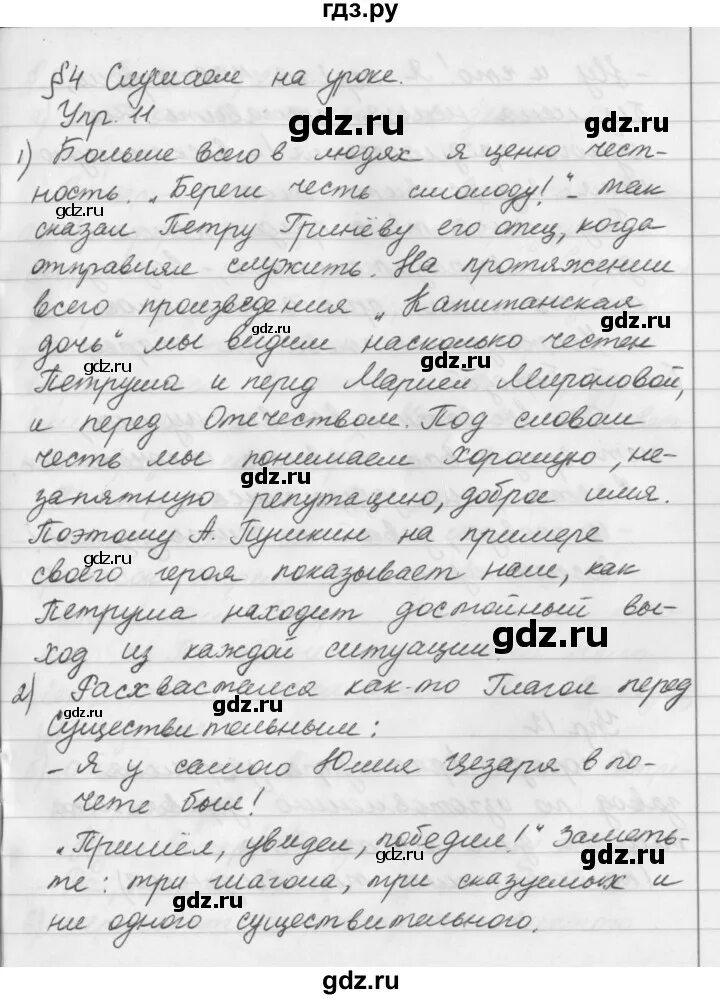 гдз.ру
§4 Слушаем на уроке.
Упр. 11
1) Больше всего в людях я ценю чест-
ность. „Береги честь смолоду!“ – так
сказал Петру Гринёву его отец, когда
отправлял служить. На протяжении
всего произведения „Капитанская
дочь“ мы видим насколько честен
Петруша и перед Марией Мироновой,
и перед Отечеством. Под словом
честь мы понимаем хорошую, не-
запятную репутацию, доброе имя.
Поэтому А. Пушкин на примере
своего героя показывает нам, как
Петруша находит достойный вы-
ход из каждой ситуации.
2) Расхвастался как-то Глагол перед
Существительным:
– Я у самого Юлия Цезаря в по-
чёте был!
„Пришёл, увидел, победил!“ Заметь-
те: три глагола, три сказуемых и
ни одного существительного.
gdz.ru